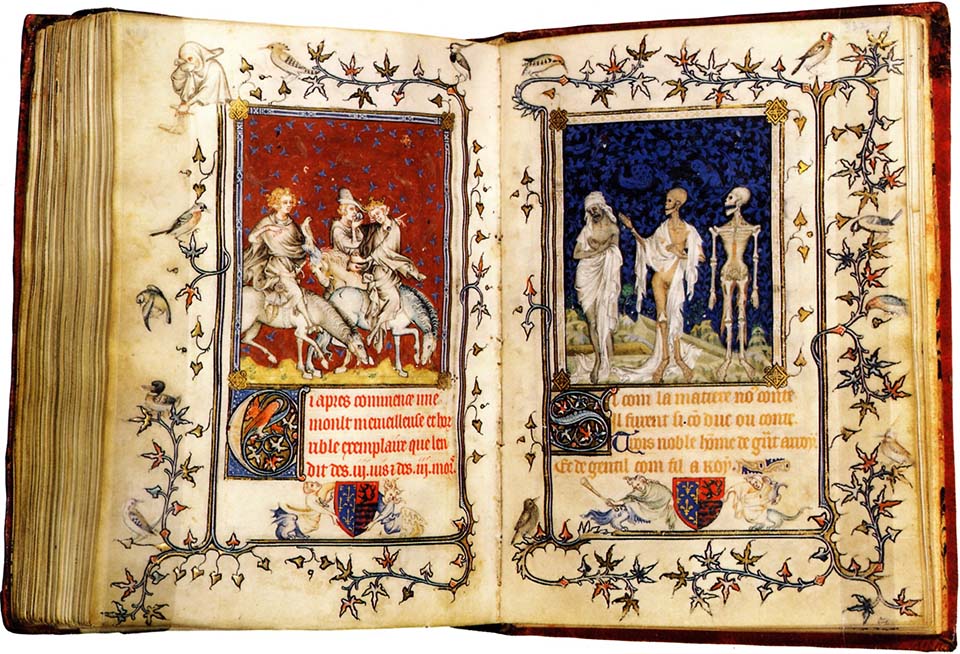 Ci apres commence une
moult merueilleuse et hor
rible exemplaire que len
dit des .iii. uis ⁊ des .iii. mors.
Si com la matiere no conte
Il furent si cō duc ou conte
Trois noble hōme de grāt arroy
Et de gentil com fil a roy.